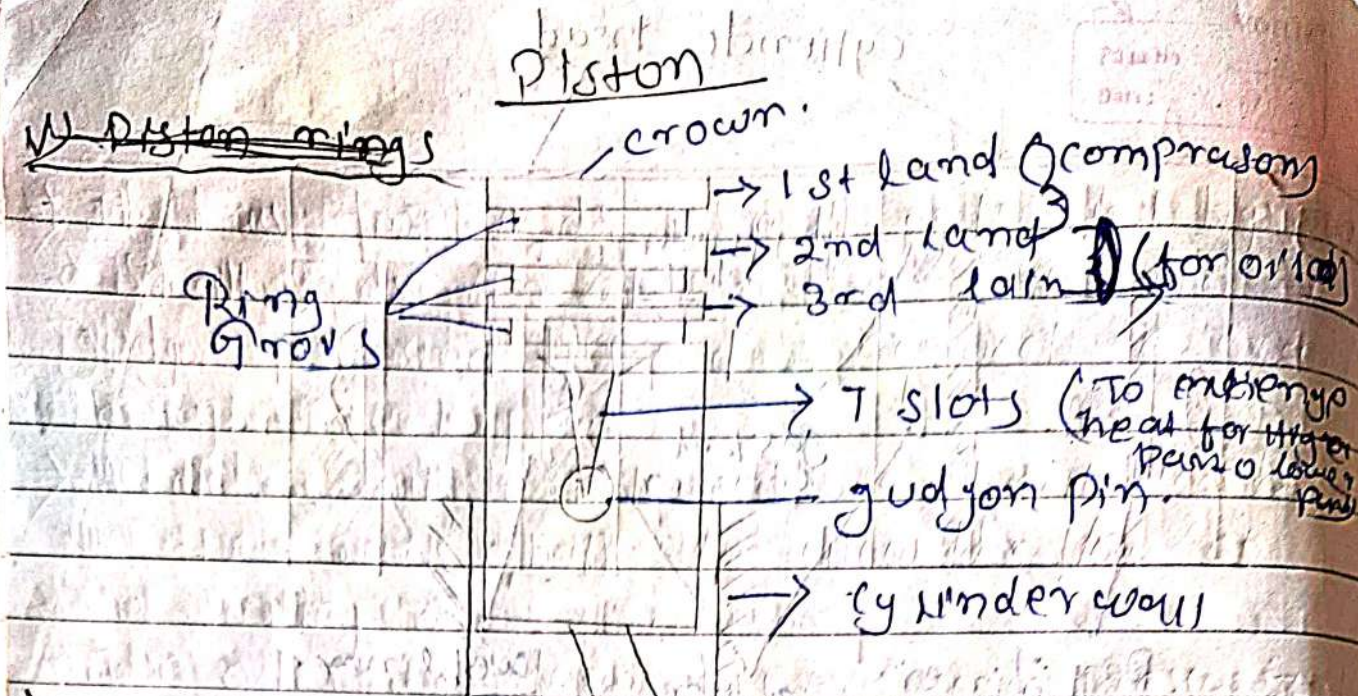 Piston
Piston rings
crown.
1st land (comprason)
2nd land
3rd lain (for oil
Ring
Grovs
T slots (To
heat for
gudjon pin.
cylinder wall